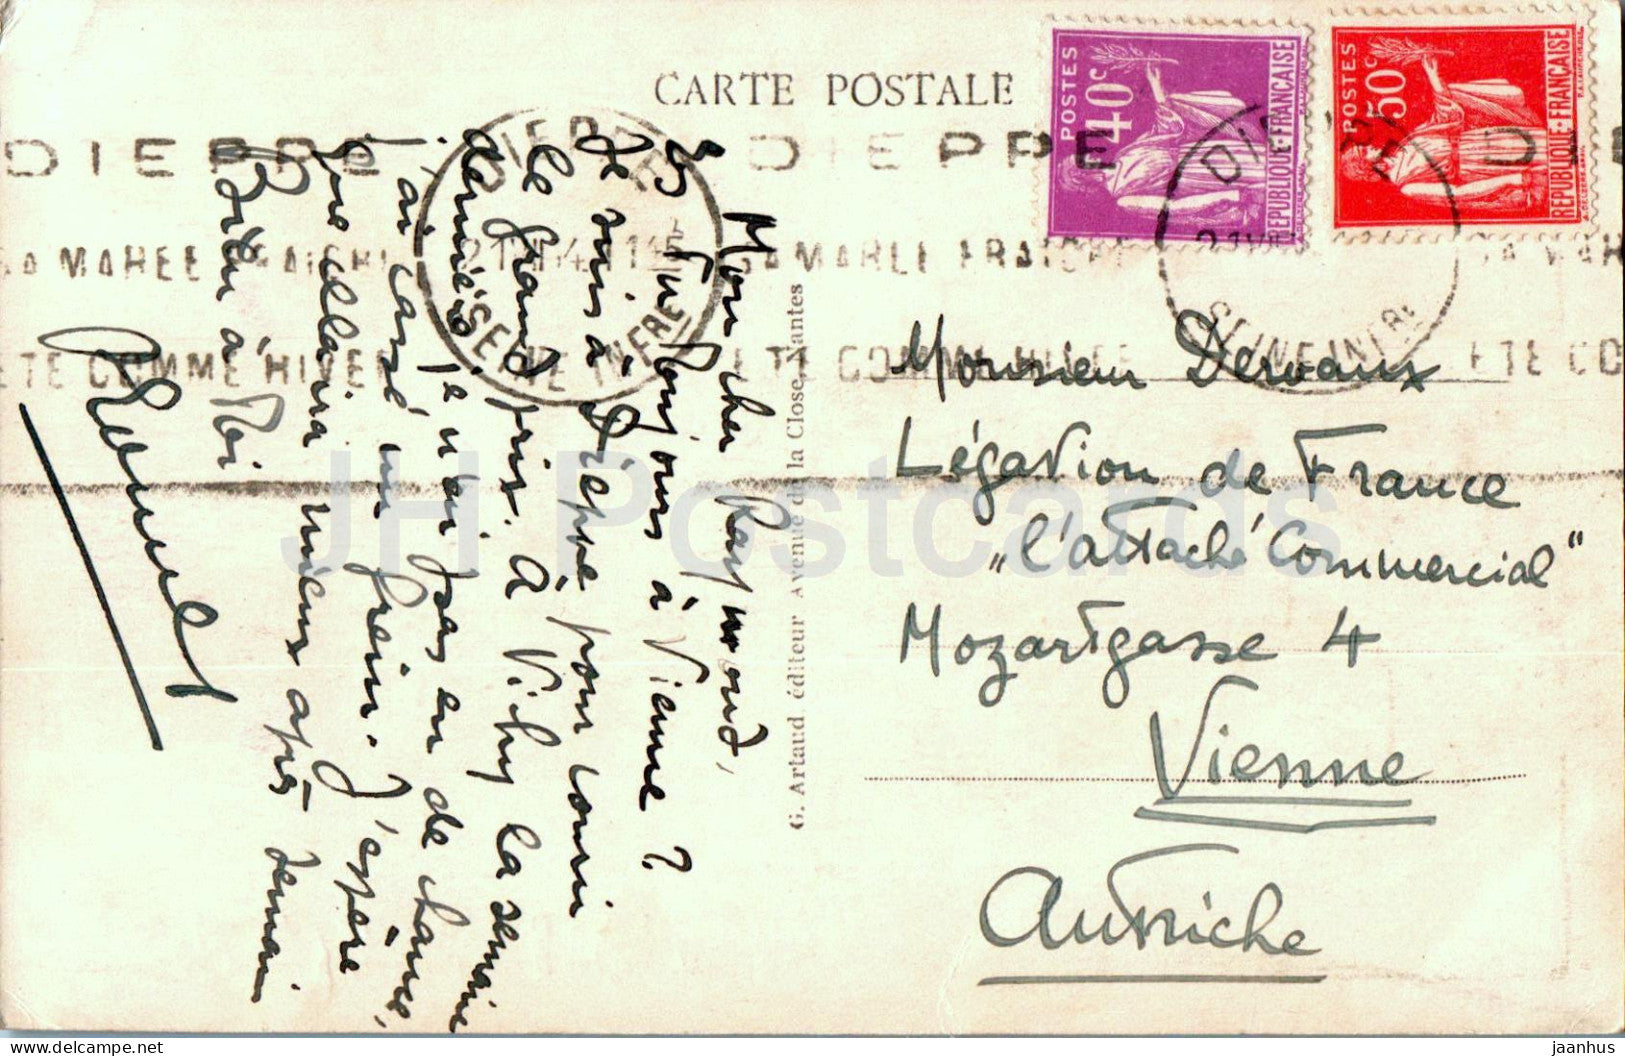 CARTE POSTALE
POSTES
40c
REPUBLIQUE·FRANÇAISE
POSTES
50c
REPUBLIQUE·FRANÇAISE
DIEPPE
DIEPPE
DIE
SA MAREE FRAICHE
SA MAREE FRAICHE
SA MAR
ETE COMME HIVER
ETE COMME HIVER
ETE CO
DIEPPE
SEINE INFRE
DIEPPE
SEINE INFRE
Mon cher Raymond,
Es Tu Toujours à Vienne ?
Je suis à Dieppe pour courir
le grand prix. À Vichy la semaine
dernière je n'ai pas eu de chance,
j'ai cassé un frein. J'espère
que cela ira mieux après-demain
Bien à Toi
G. Artaud éditeur Avenue de la Close Nantes
Monsieur Dervaux
Légation de France
„L'attaché Commercial"
Mozartgasse 4
Vienne
Autriche
JH Postcards
delcampe.net
jaanhus